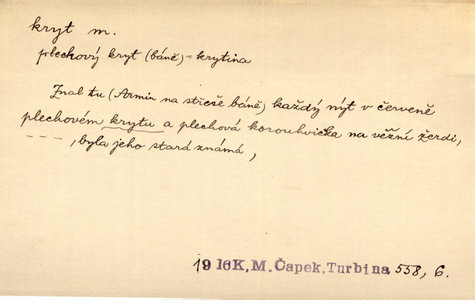 kryt m.
plechový kryt (báně) = krytina
Znal tu (Armin na střeše báně) každý nýt v červeně
plechovém krytu a plechová korouhvička na věžní žerdi,
– – – , byla jeho stará známá,
1916 K, M. Čapek, Turbina 558, 6.